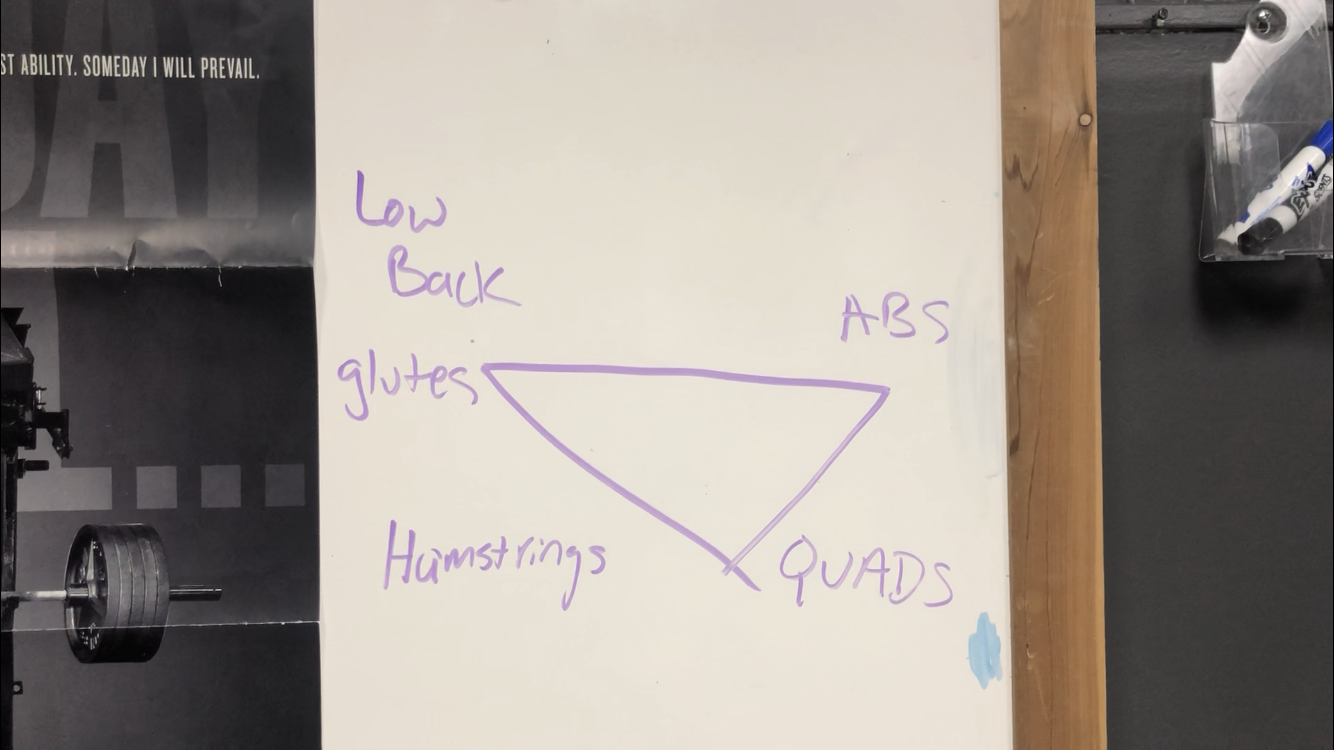 ST ABILITY. SOMEDAY I WILL PREVAIL.
DAY
Low
Back
ABS
glutes
Hamstrings
QUADS
EXPO